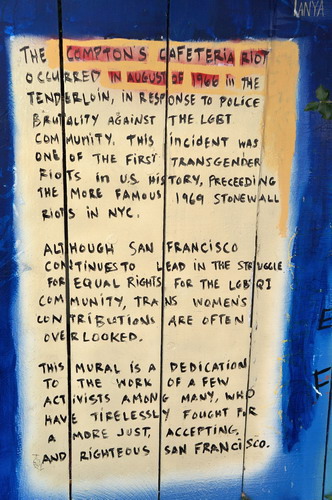 TANYA
THE COMPTON'S CAFETERIA RIOT
OCCURRED IN AUGUST OF 1966 IN THE
TENDERLOIN, IN RESPONSE TO POLICE
BRUTALITY AGAINST THE LGBT
COMMUNITY. THIS INCIDENT WAS
ONE OF THE FIRST TRANSGENDER
RIOTS IN U.S. HISTORY, PRECEEDING
THE MORE FAMOUS 1969 STONEWALL
RIOTS IN NYC.
ALTHOUGH SAN FRANCISCO
CONTINUES TO LEAD IN THE STRUGGLE
FOR EQUAL RIGHTS FOR THE LGBTQI
COMMUNITY, TRANS WOMEN'S
CONTRIBUTIONS ARE OFTEN
OVERLOOKED.
THIS MURAL IS A DEDICATION
TO THE WORK OF A FEW
ACTIVISTS AMONG MANY, WHO
HAVE TIRELESSLY FOUGHT FOR
A MORE JUST, ACCEPTING,
AND RIGHTEOUS SAN FRANCISCO.